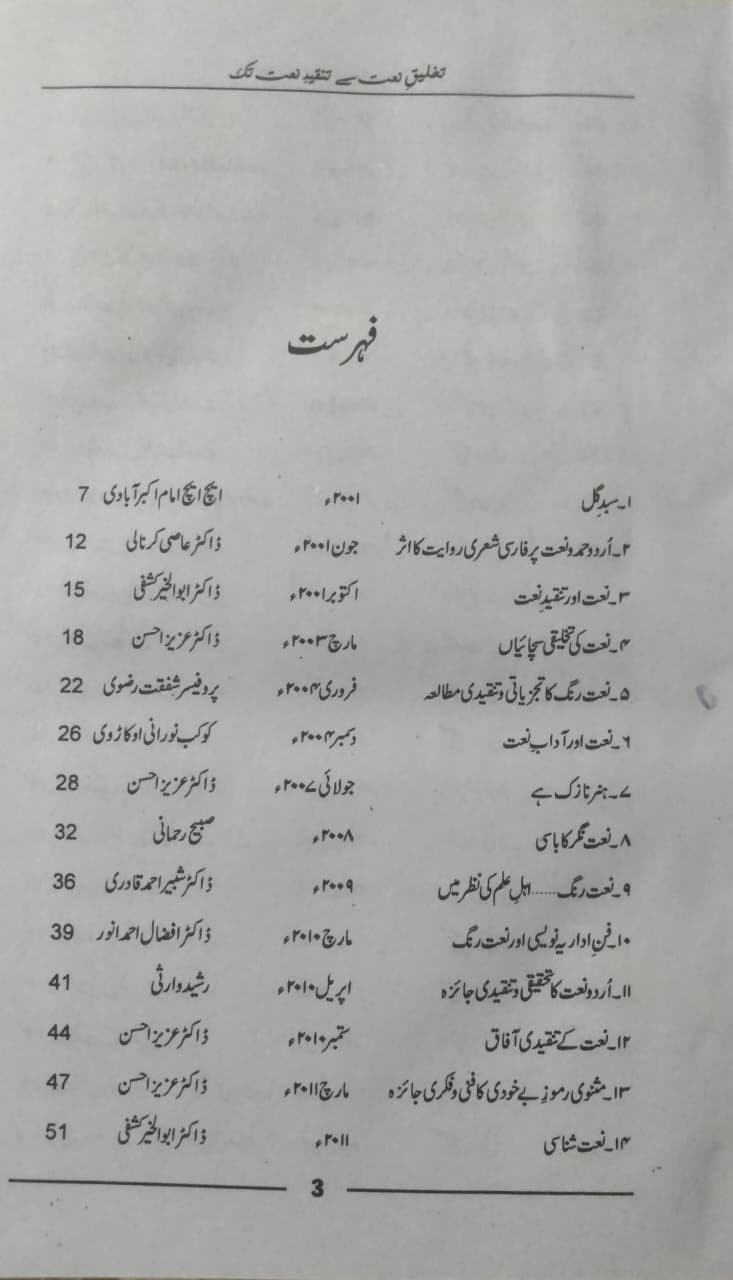 تخلیقِ نعت سے تنقیدِ نعت تک
فہرست
۱۔ سبدِ گل ۲۰۰۱ء ایچ ایچ امام اکبر آبادی 7
۲۔ اُردو حمد و نعت پر فارسی شعری روایت کا اثر جون ۲۰۰۱ء ڈاکٹر عاصی کرنالی 12
۳۔ نعت اور تنقیدِ نعت اکتوبر ۲۰۰۱ء ڈاکٹر ابوالخیر کشفی 15
۴۔ نعت کی تخلیقی سچائیاں مارچ ۲۰۰۳ء ڈاکٹر عزیز احسن 18
۵۔ نعت رنگ کا تجزیاتی و تنقیدی مطالعہ فروری ۲۰۰۴ء پروفیسر شفقت رضوی 22
۶۔ نعت اور آدابِ نعت دسمبر ۲۰۰۴ء کوکب نورانی اوکاڑوی 26
۷۔ ہنر نازک ہے جولائی ۲۰۰۷ء ڈاکٹر عزیز احسن 28
۸۔ نعت نگر کا باسی ۲۰۰۸ء صبیح رحمانی 32
۹۔ نعت رنگ...... اہلِ علم کی نظر میں ۲۰۰۹ء ڈاکٹر شبیر احمد قادری 36
۱۰۔ فنِ اداریہ نویسی اور نعت رنگ مارچ ۲۰۱۰ء ڈاکٹر افضال احمد انور 39
۱۱۔ اُردو نعت کا تحقیقی و تنقیدی جائزہ اپریل ۲۰۱۰ء رشید وارثی 41
۱۲۔ نعت کے تنقیدی آفاق ستمبر ۲۰۱۰ء ڈاکٹر عزیز احسن 44
۱۳۔ مثنوی رموزِ بے خودی کا فنی و فکری جائزہ مارچ ۲۰۱۱ء ڈاکٹر عزیز احسن 47
۱۴۔ نعت شناسی ۲۰۱۱ء ڈاکٹر ابوالخیر کشفی 51
3